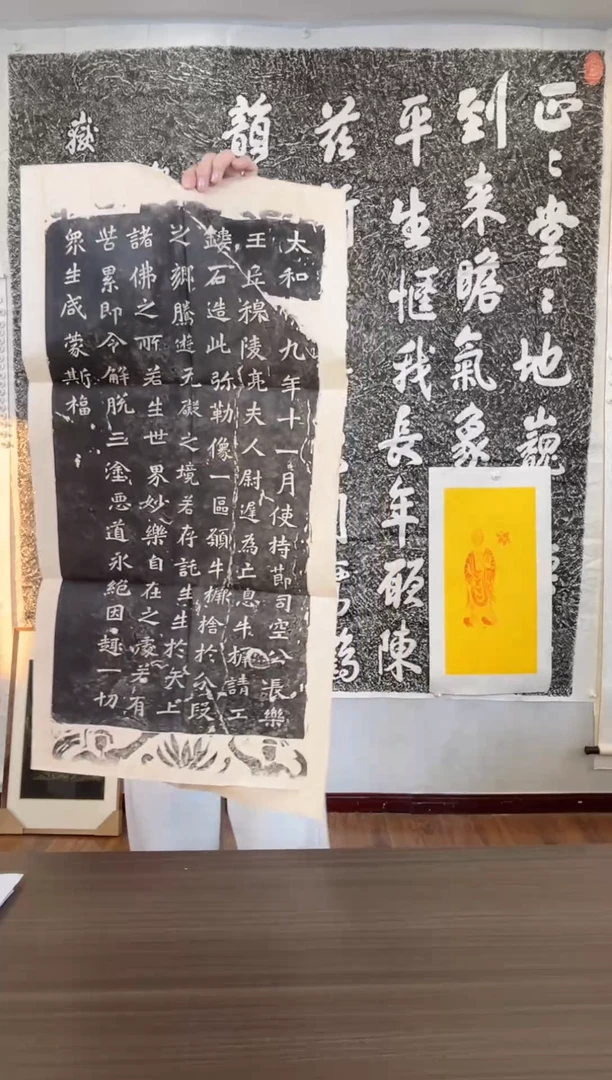 正〻堂〻地巍
到来瞻氣象
平生惬我長年願陳
兹
韻
嶽
太和 九年十一月使持節司空公長樂
王丘穆陵亮夫人尉遲為亡息牛橛請工
鏤石造此弥勒像一區願牛橛捨於分段
之鄉騰遊无礙之境若存託生生於天上
諸佛之所若生世界妙樂自在之處若有
苦累即令解脫三塗惡道永絕因趣一切
眾生咸蒙斯福